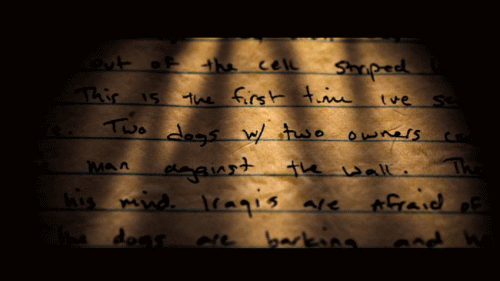 out of the cell striped
This is the first time I've
Two dogs w/ two owners
man against the wall.
his mind. Iraqis are Afraid of
the dogs are barking and